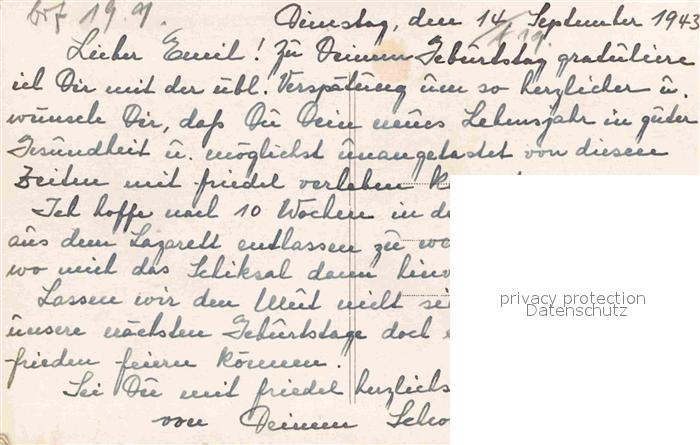 Dienstag, den 14. September 1943
19.9.
Lieber Emil! Zu Deinem Geburtstag gratuliere
ich Dir mit der übl. Verspätung um so herzlicher u.
wünsche Dir, daß Du Dein neues Lebensjahr in guter
Gesundheit u. möglichst unangetastet von diesen
Zeiten mit Friedel verleben
Ich hoffe nach 10 Wochen in
aus dem Lazarett entlassen zu
wo mich das Schiksal dann
Lassen wir den Mut nicht
unsere nächsten Geburtstage doch
frieden feiern können.
Sei Du mit Friedel herzlichs
von Deinem
privacy protection
Datenschutz